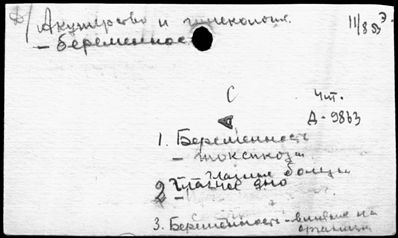 Акушерство и гинекология.
– беременнос
11/8 53
С
Чит.
Д-9863
1. Беременность
– токсикозы
Глазные болезни
2 Глазное дно
3. Беременность – влияние на
организм